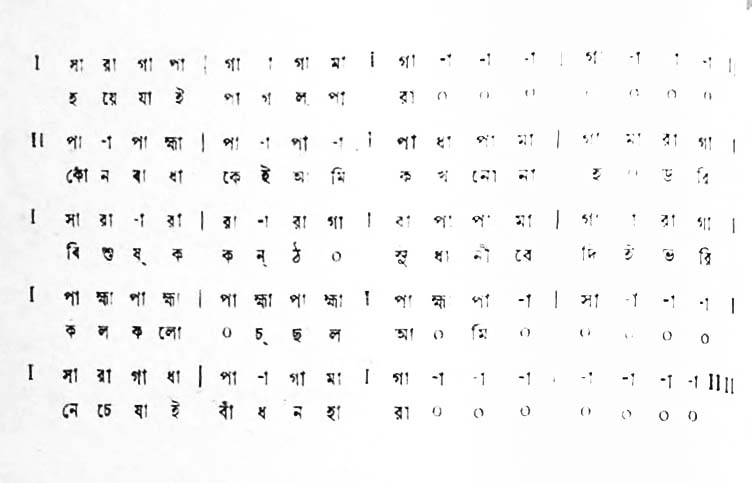 I সা রা গা পা | গা া গা মা I গা -া -া -া | গা -া া -া II
হ য়ে যা ই পা গ ল পা রা ০ ০ ০ ০ ০ ০
II পা -া পা হ্মা | পা -া পা -া I পা ধা পা মা | গা মা রা গা I
কোঁ ন ৰা ধা কে ই আ মি ক খ নো না হ ০ ড রি
I সা রা -া রা | রা -া রা গা I রা পা পা মা | গা া রা গা I
ৰি শু ষ্ ক ক ন্ ঠ ০ সু ধা নী রে দি ই ভ রি
I পা হ্মা পা হ্মা | পা হ্মা পা হ্মা I পা হ্ম পা -া | সা -া -া -া I
ক ল ক লো ০ চ্ ছ ল আ ০ মি ০ ০ ০ ০ ০
I সা রা গা ধা | পা -া গা মা I গা -া -া -া -া -া -া -া II II
নে চে যা ই বাঁ ধ ন হা রা ০ ০ ০ ০ ০ ০ ০